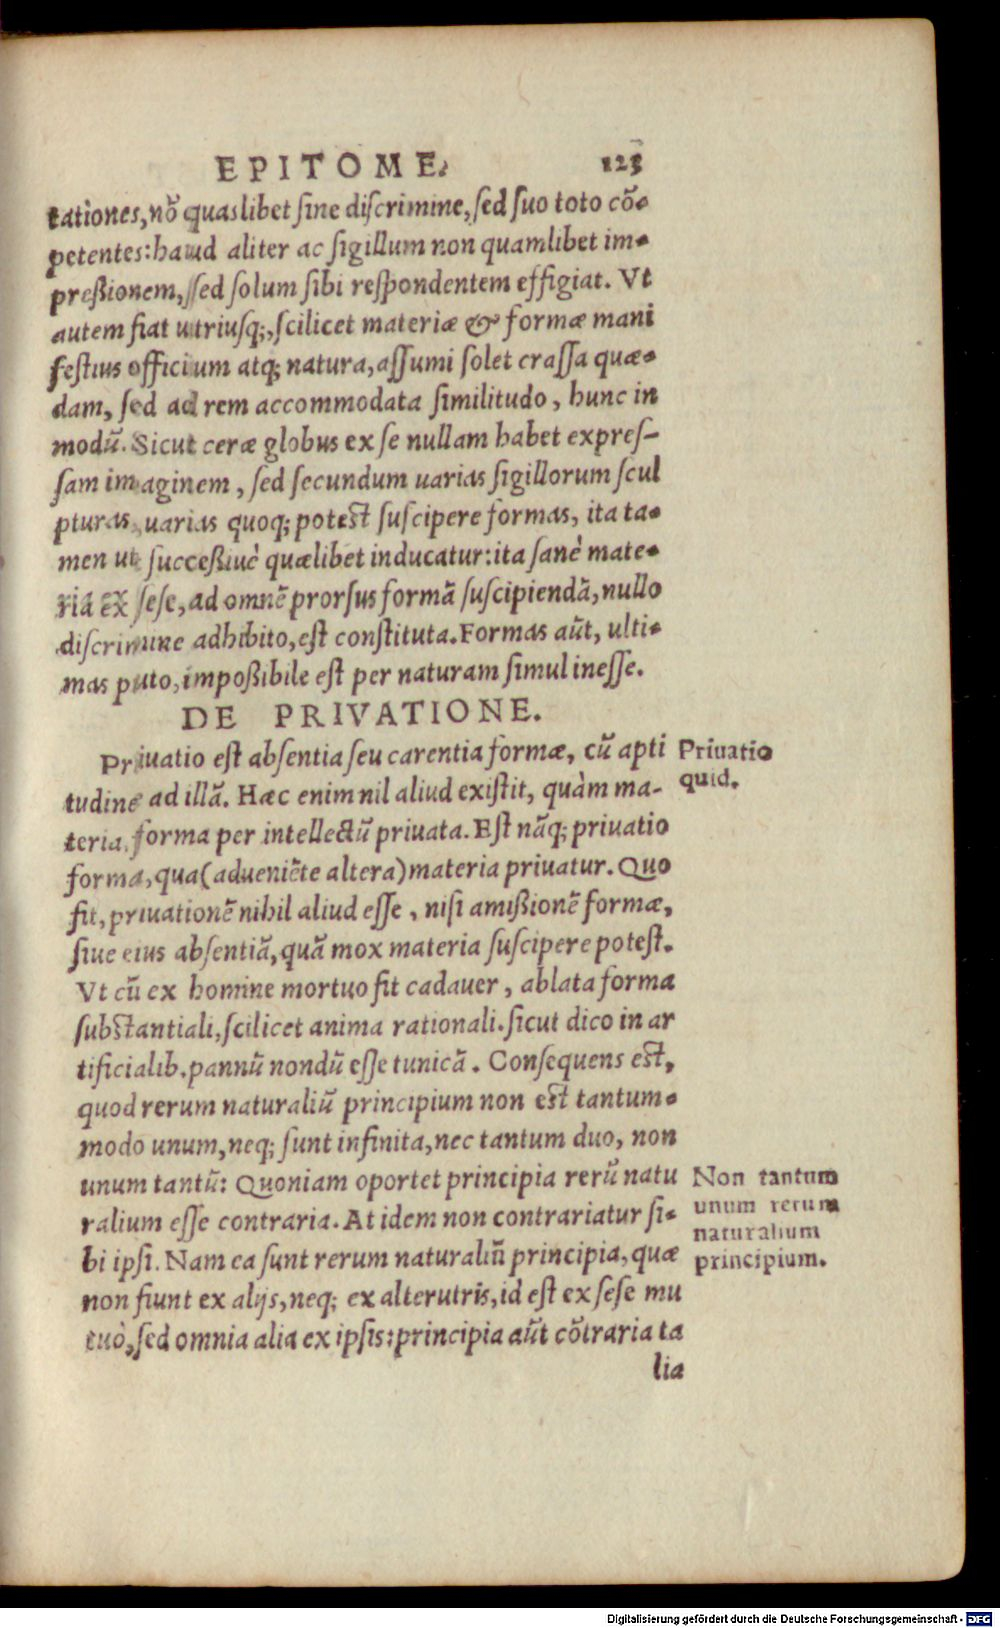 EPITOME. 123
tationes, nõ quaslibet ſine diſcrimine, ſed ſuo toto cõ-
petentes: haud aliter ac ſigillum non quamlibet im-
preßionem, ſed ſolum ſibi reſpondentem effigiat. Vt
autem fiat utriuſq;, ſcilicet materiæ & formæ mani
feſtius officium atq; natura, aſſumi ſolet craſſa quæ-
dam, ſed ad rem accommodata ſimilitudo, hunc in
modũ. Sicut ceræ globus ex ſe nullam habet expreſ-
ſam imaginem, ſed ſecundum uarias ſigillorum ſcul
pturas, uarias quoq; poteſt ſuſcipere formas, ita ta-
men ut ſucceßiuè quælibet inducatur: ita ſanè mate-
ria ex ſeſe, ad omnẽ prorſus formã ſuſcipiendã, nullo
diſcrimine adhibito, eſt conſtituta. Formas aũt, ulti-
mas puto, impoßibile eſt per naturam ſimul ineſſe.
DE PRIVATIONE.
Priuatio eſt abſentia ſeu carentia formæ, cũ apti
tudine ad illã. Hæc enim nil aliud exiſtit, quàm ma-
teria, forma per intellectũ priuata. Eſt nãq; priuatio
forma, qua (adueniẽte altera) materia priuatur. Quo
fit, priuationẽ nihil aliud eſſe, niſi amißionẽ formæ,
ſiue eius abſentiã, quã mox materia ſuſcipere poteſt.
Vt cũ ex homine mortuo fit cadauer, ablata forma
ſubſtantiali, ſcilicet anima rationali. ſicut dico in ar
tificialib. pannũ nondũ eſſe tunicã. Conſequens eſt,
quod rerum naturaliũ principium non eſt tantum-
modo unum, neq; ſunt infinita, nec tantum duo, non
unum tantũ: Quoniam oportet principia rerũ natu
ralium eſſe contraria. At idem non contrariatur ſi-
bi ipſi. Nam ea ſunt rerum naturaliũ principia, quæ
non fiunt ex alijs, neq; ex alterutris, id eſt ex ſeſe mu
tuò, ſed omnia alia ex ipſis: principia aũt cõtraria ta
lia
Priuatio
quid.
Non tantum
unum rerum
naturalium
principium.
Digitalisierung gefördert durch die Deutsche Forschungsgemeinschaft - DFG